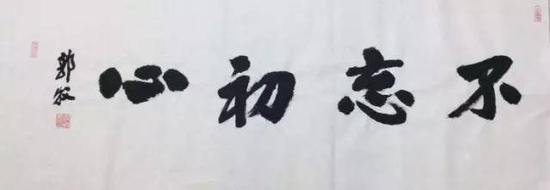 不忘初心
郭牧